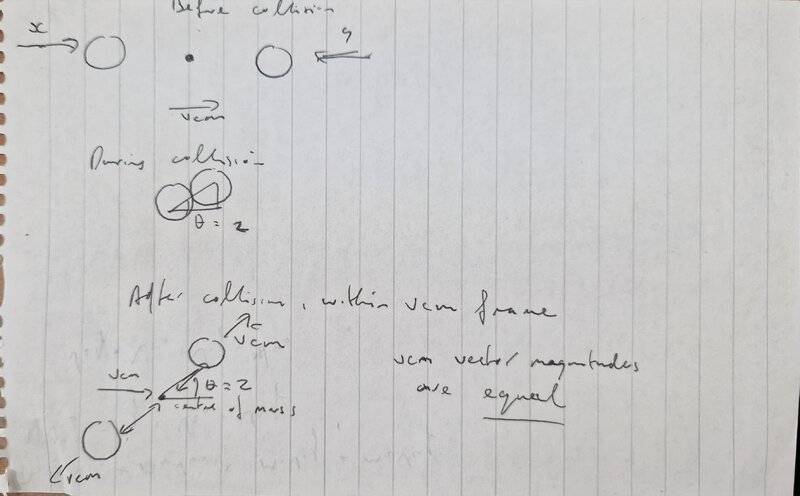 Before collision
x
y
vcm
During collision
θ = z
After collision, within vcm frame
vcm
vcm
θ = z
centre of mass
vcm
vcm vector magnitudes
are equal